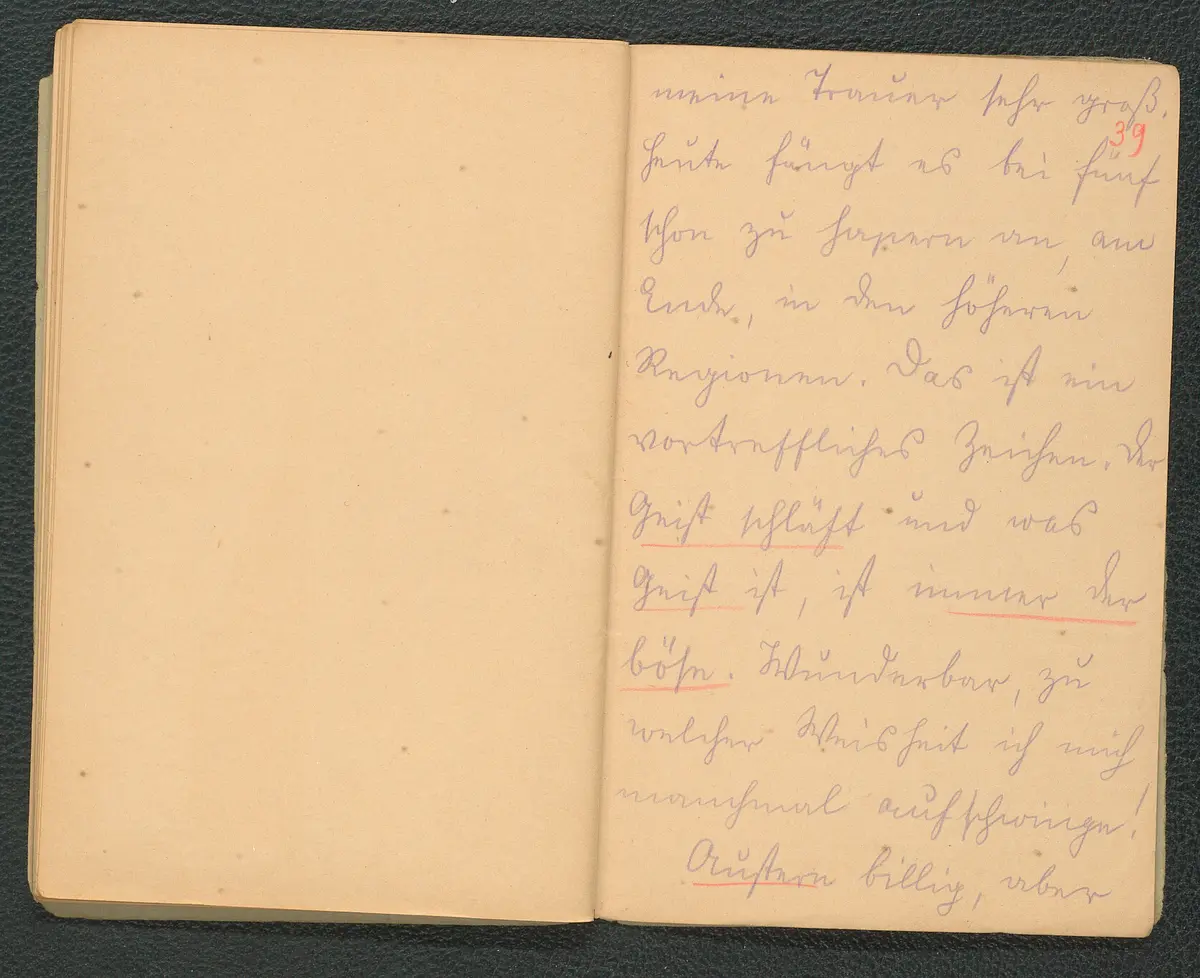 meine Trauer sehr groß.
39
Heute fängt es bei fünf
schon zu hapern an, am
Ende, in den höheren
Regionen. Das ist ein
vortreffliches Zeichen. Der
Geist schläft und was
Geist ist, ist immer der
böse. Wunderbar, zu
welcher Weisheit ich mich
manchmal aufschwinge!
Austern billig, aber